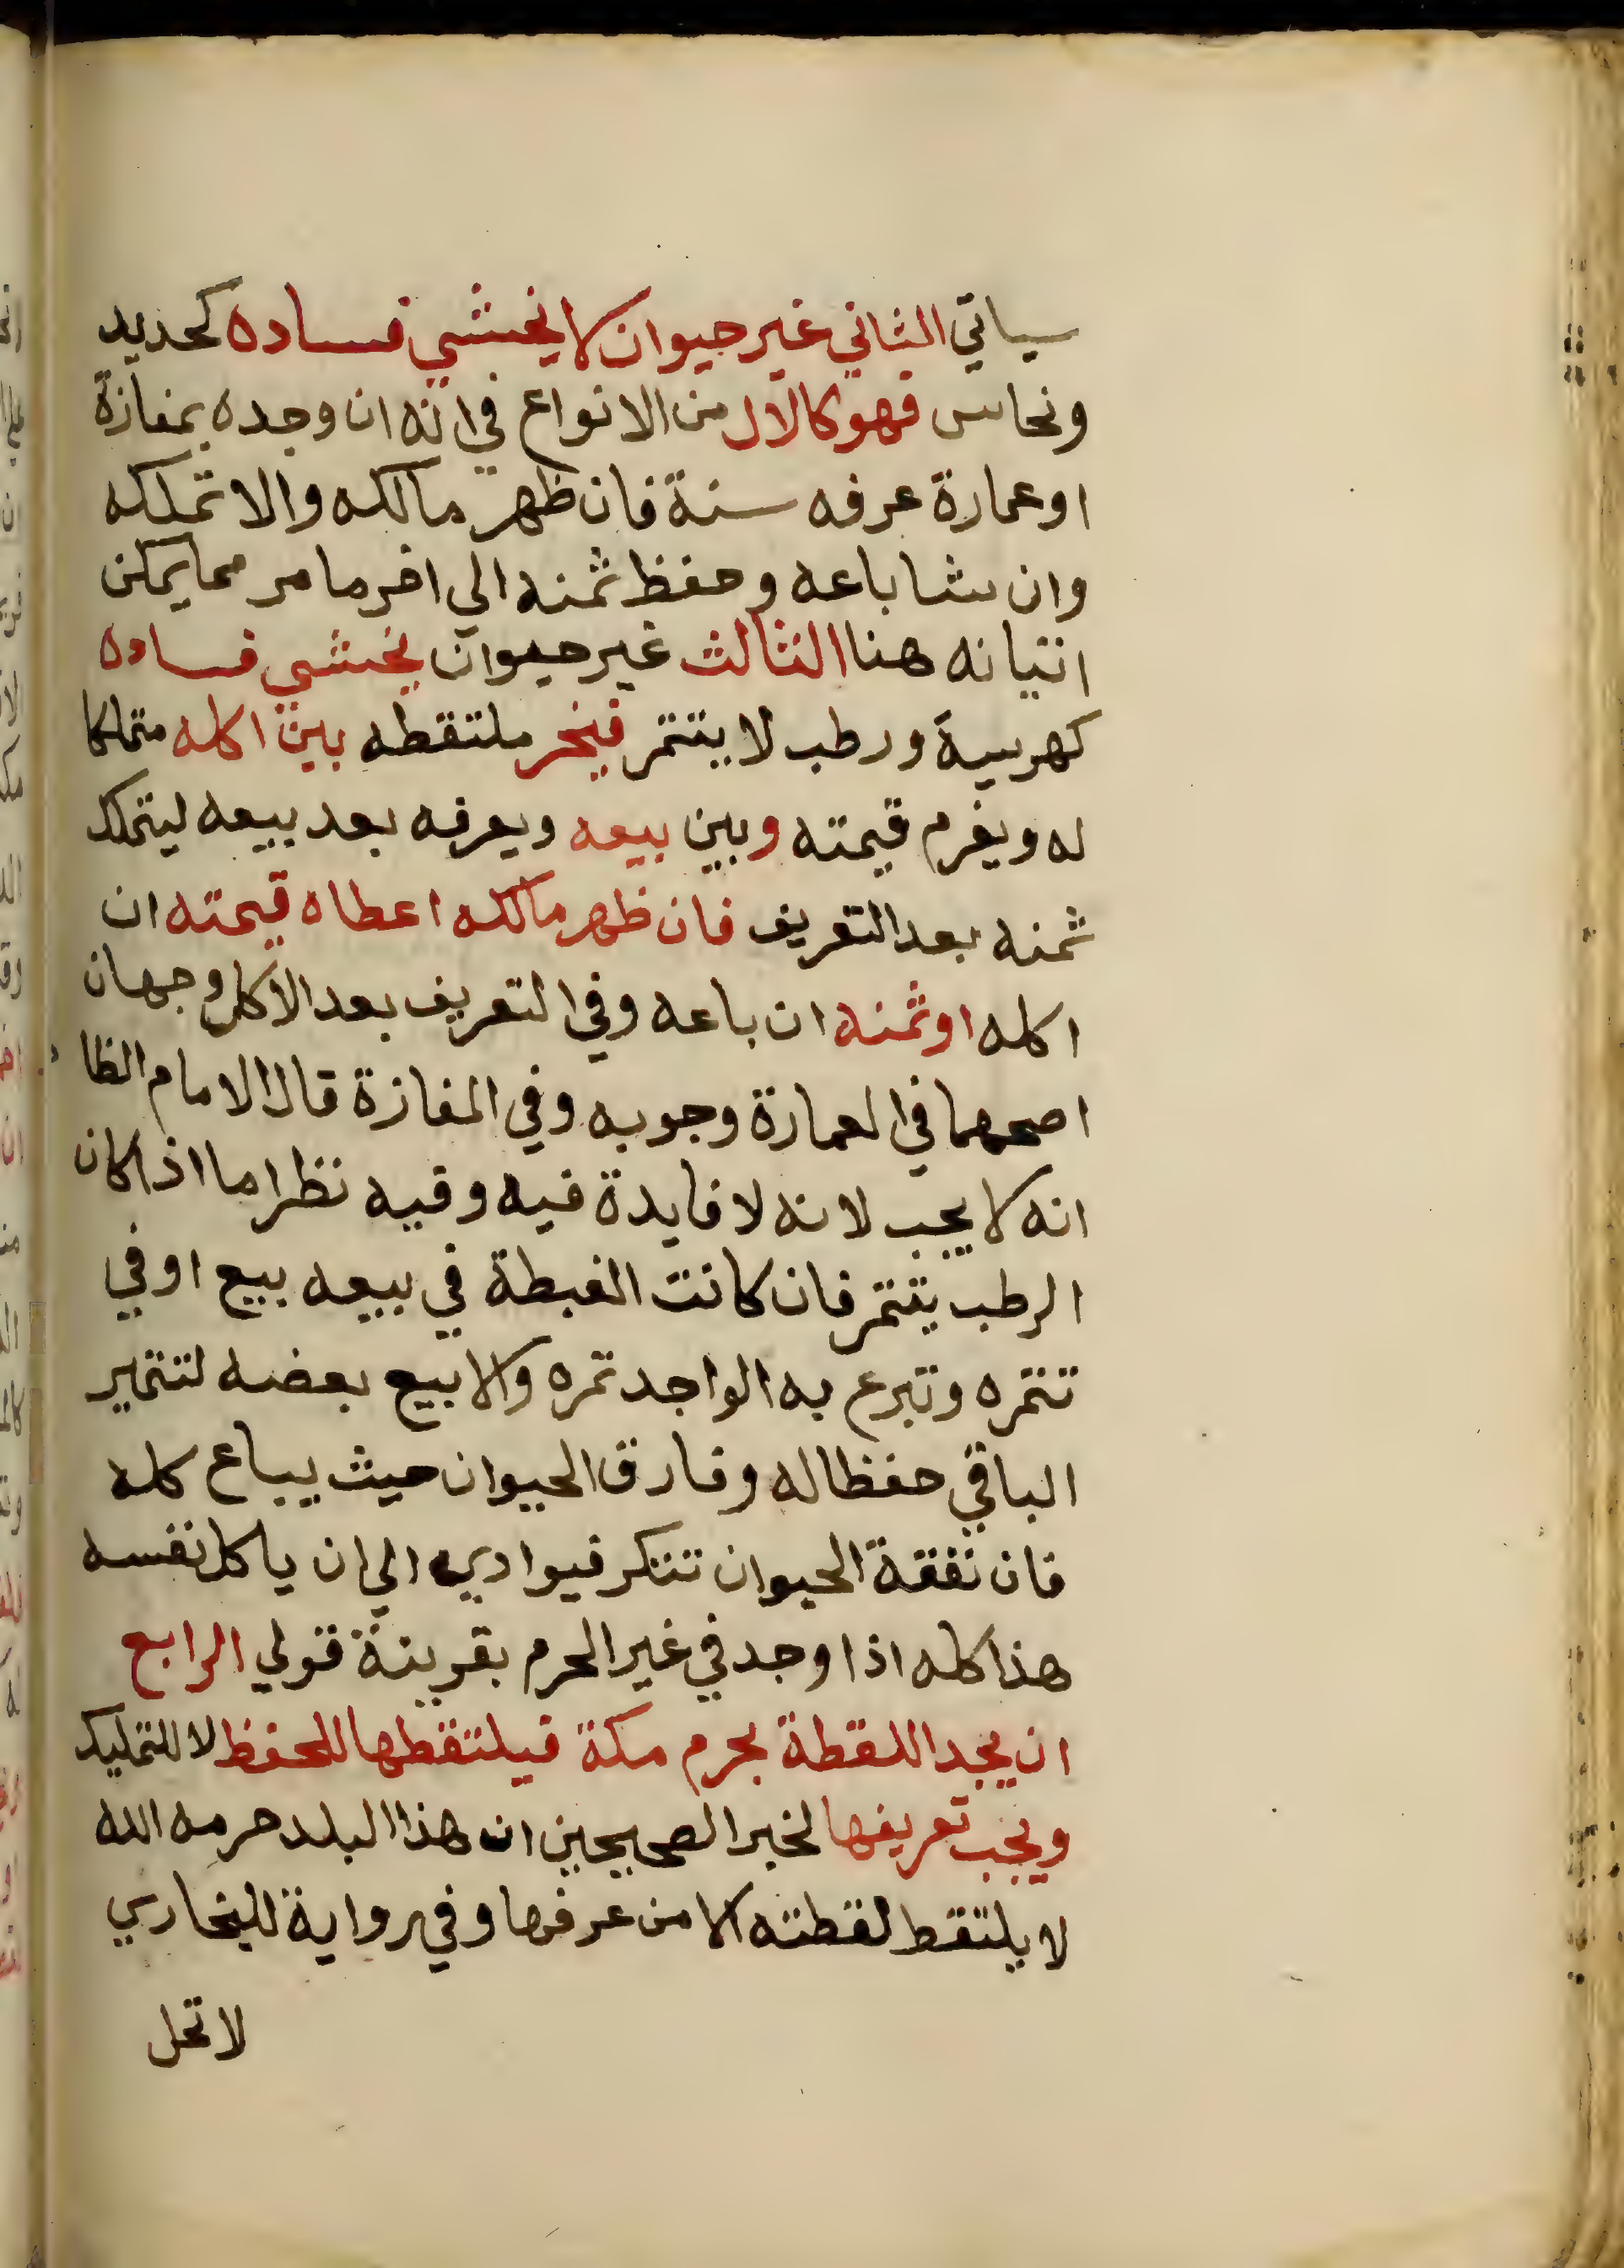 سياتي الثاني غير حيوان لا يخشي فساده كحديد
ونحاس فهو كالال من الانواع في انه ان وجده بمفازة
او عمارة عرفه سنة فان ظهر مالكه والا تملكه
وان شا باعه وحفظ ثمنه الي اخر ما مر مما يمكن
اتيانه هنا الثالث غير حيوان يخشي فساده
كهريسة ورطب لا يتتمر فيخر ملتقطه بين اكله متملكا
له ويغرم قيمته وبين بيعه ويعرفه بعد بيعه ليتملك
ثمنه بعد التعريف فان ظهر مالكه اعطاه قيمته ان
اكله او ثمنه ان باعه وفي التعريف بعد الاكل وجهان
اصحهما في العمارة وجوبه وفي المفازة قال الامام الظا
انه لا يجب لانه لا فايدة فيه وفيه نظر اما اذا كان
الرطب يتتمر فان كانت الغبطة في بيعه بيع او في
تتمره وتبرع به الواجد تمره والا بيع بعضه لتتمير
الباقي حفظا له وفارق الحيوان حيث يباع كله
فان نفقة الحيوان تتكر فيوادي الي ان ياكل نفسه
هذا كله اذا وجد في غير الحرم بقرينة قولي الرابع
ان يجد اللقطة بحرم مكة فيلتقطها للحفظ لا للتمليك
ويجب تعريفها لخبر الصحيحين ان هذا البلد حرمه الله
لا يلتقط لقطته الا من عرفها وفي رواية للبخاري
لا تحل